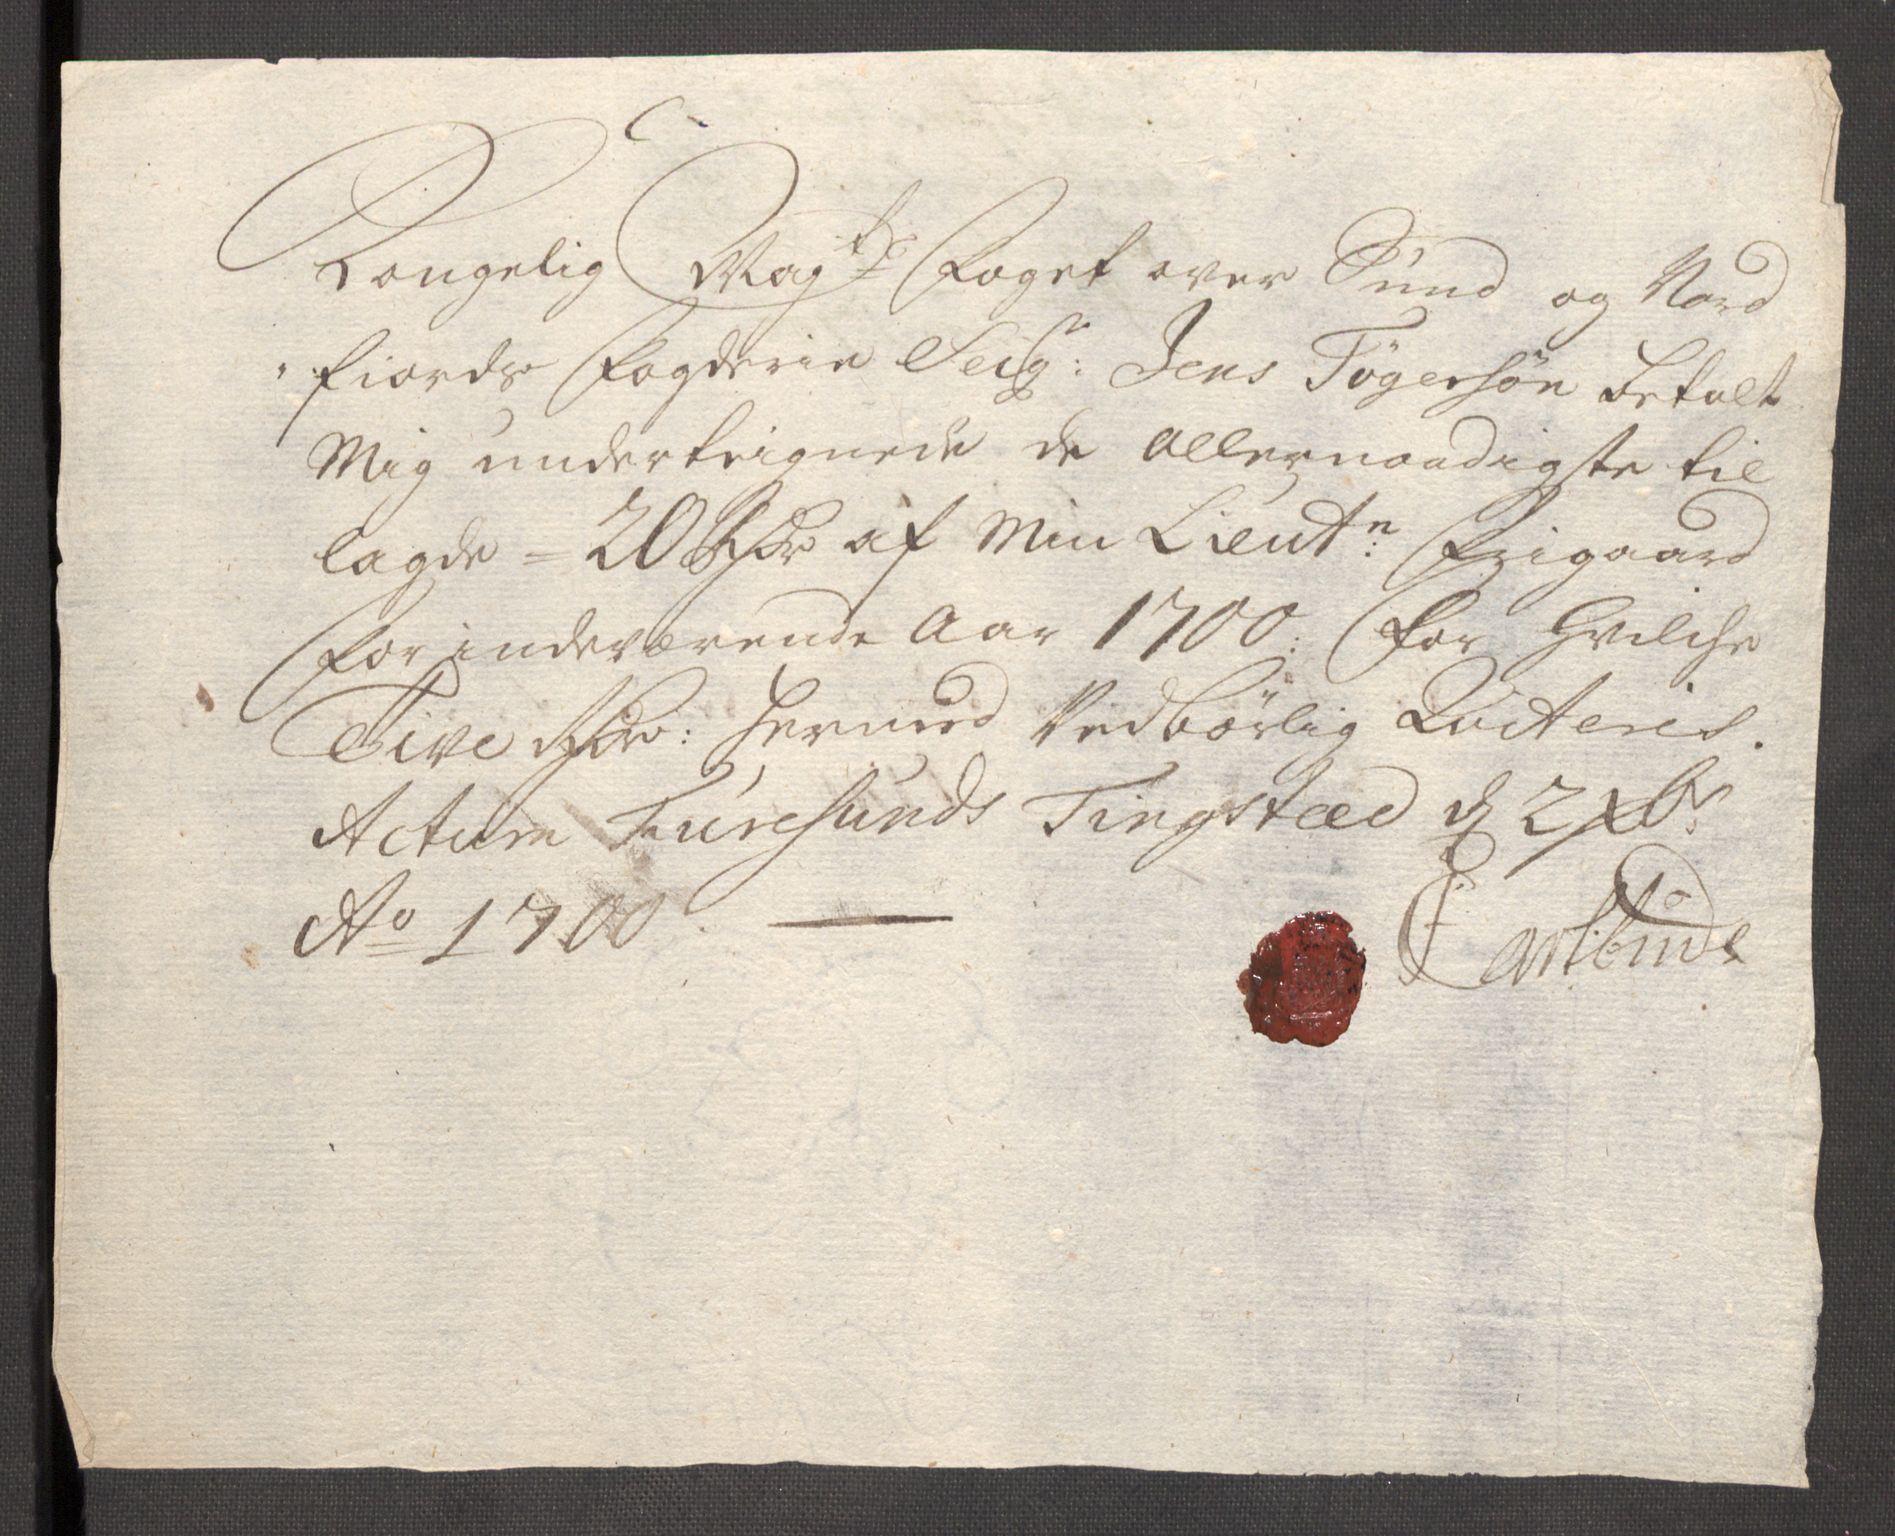 Kongelig Mag.ts Foget over Sund og Nord
fiords Fogderie Seig.r: Jens Tögersön betalt
Mig underteignede de allernaadigste til
lagde = 20 Rdr af Min Lieut.n: Frigaard
for indeværende Aar 1700: for hvilche
Tive Rdr: hermed Vedbörlig Qviteris.
Actum Furesunds Tingstæd d 2 Xbr:
Ao 1700